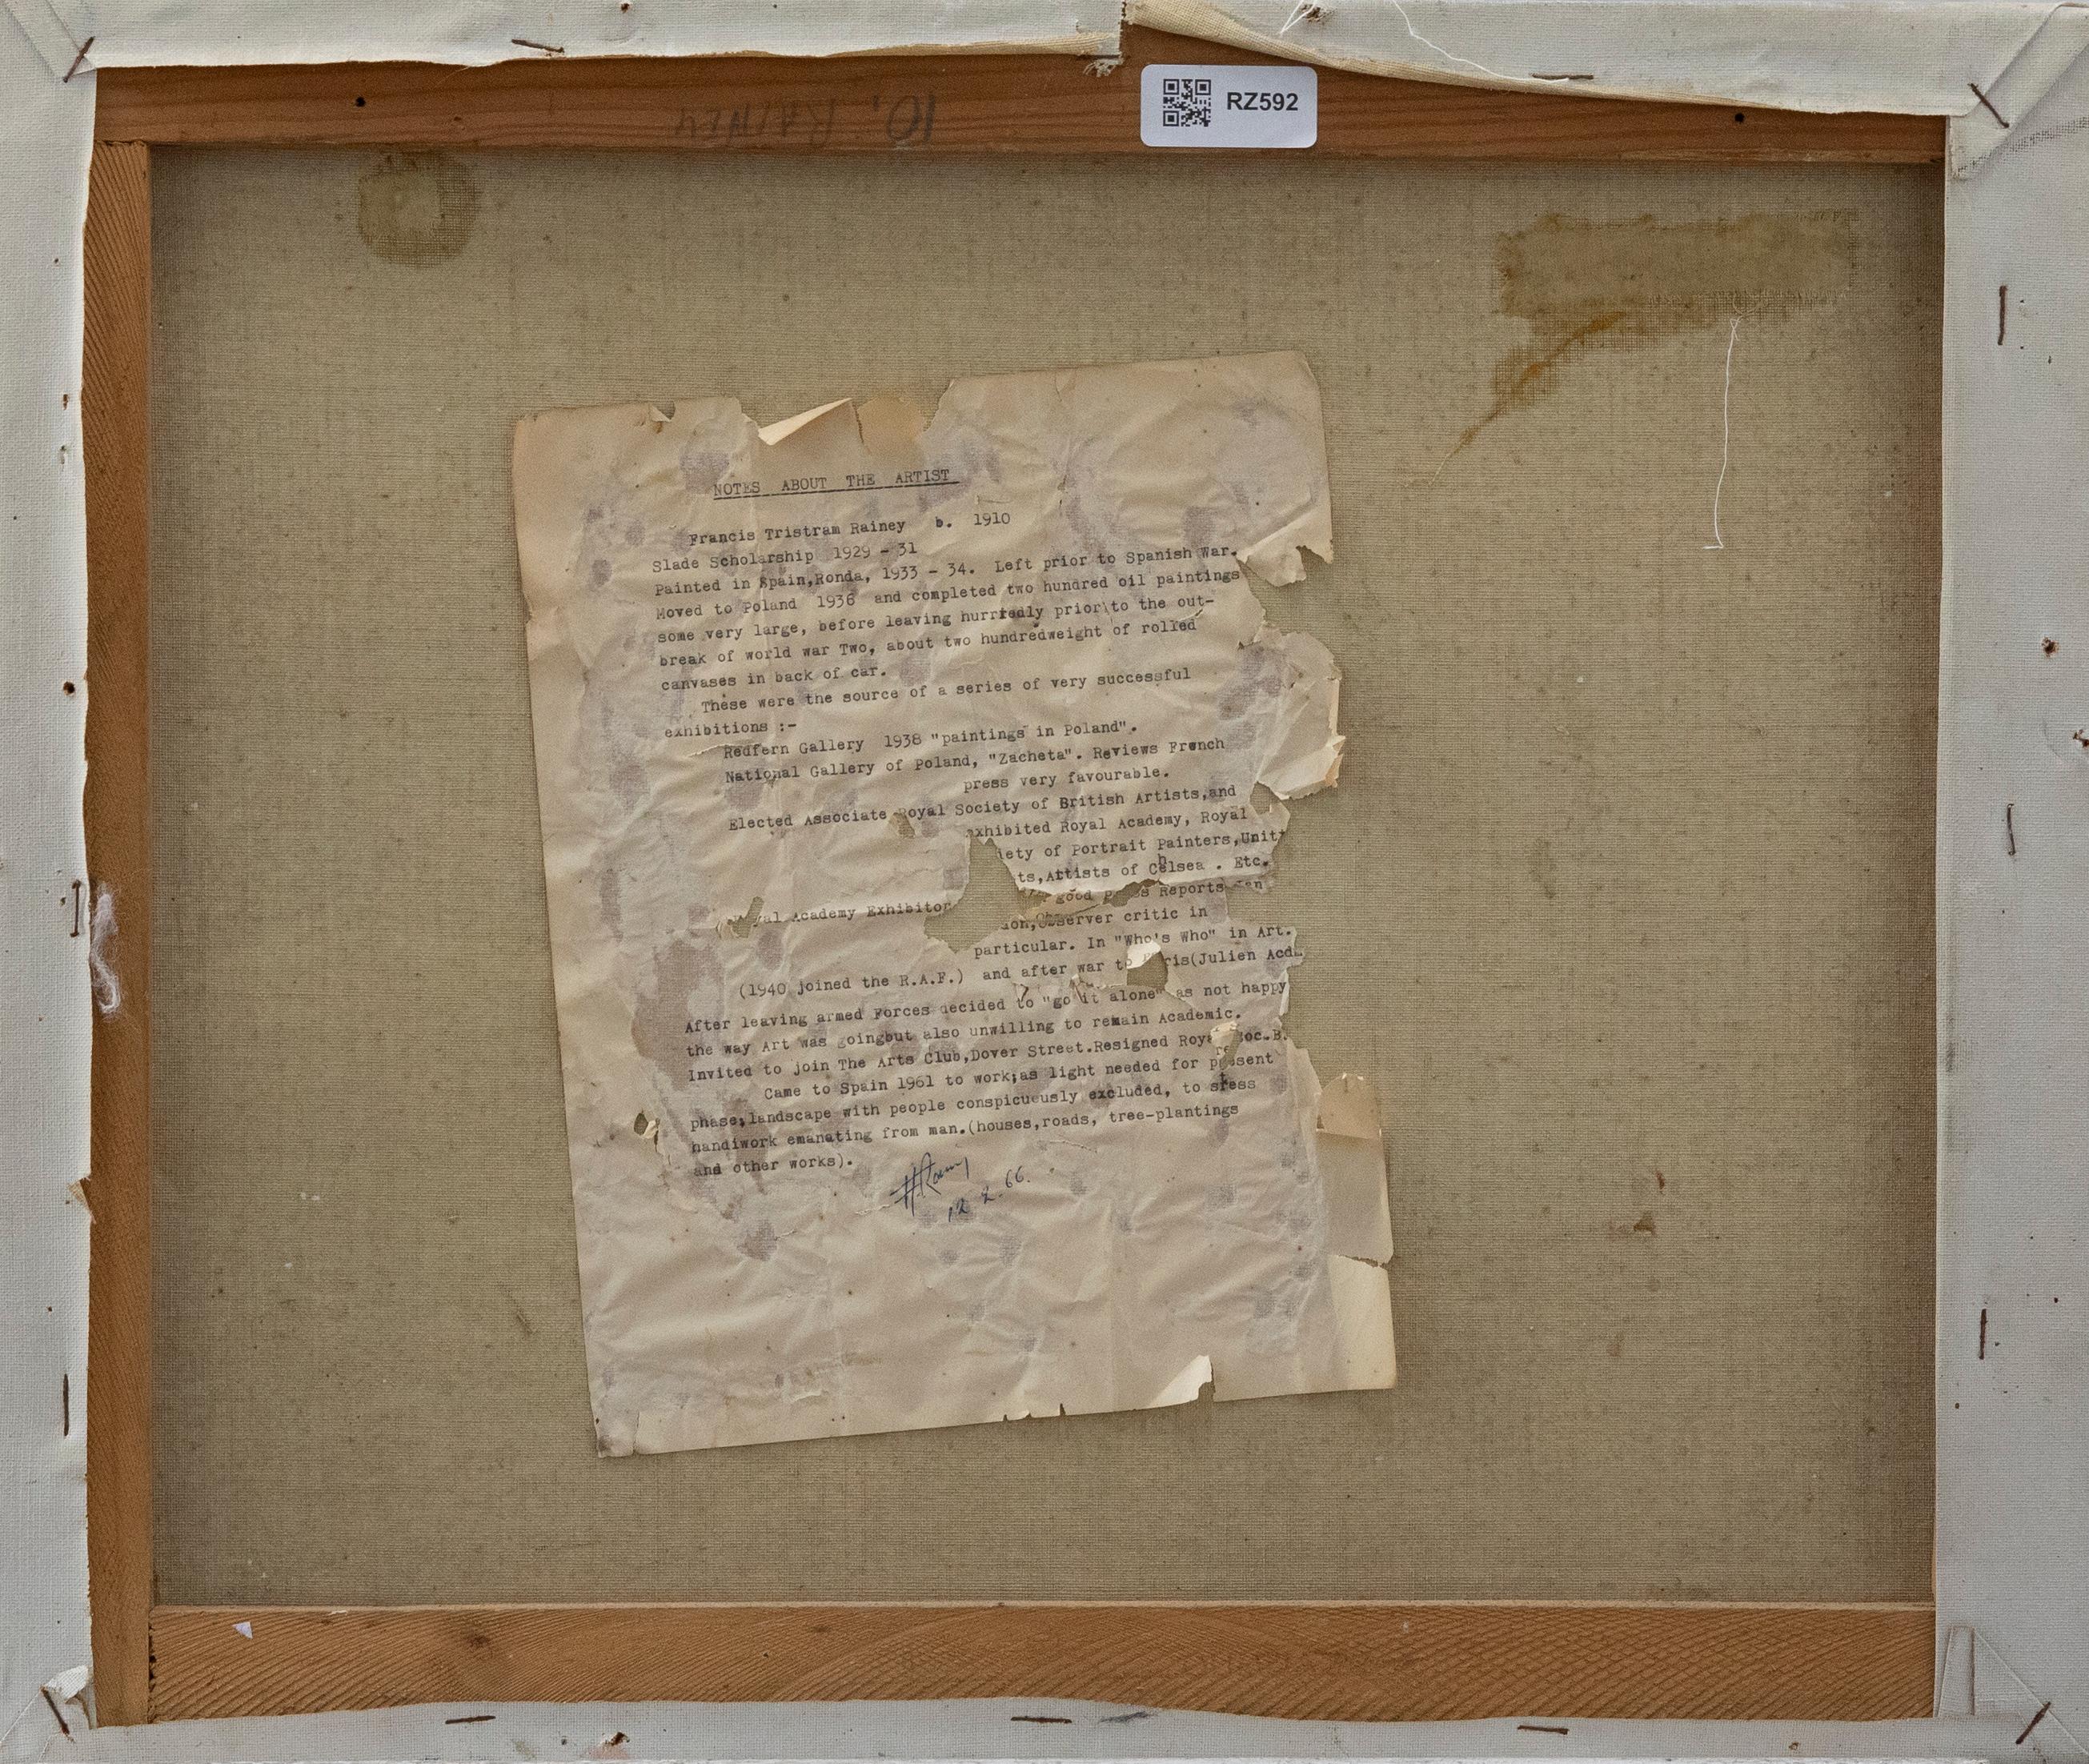 10. RAINEY
RZ592
NOTES ABOUT THE ARTIST
Francis Tristram Rainey b. 1910
Slade Scholarship 1929 - 31
Painted in Spain,Ronda, 1933 - 34. Left prior to Spanish War.
Moved to Poland 1936 and completed two hundred oil paintings
some very large, before leaving hurriedly prior to the out-
break of world war Two, about two hundredweight of rolled
canvases in back of car.
These were the source of a series of very successful
exhibitions :-
Redfern Gallery 1938 "paintings in Poland".
National Gallery of Poland, "Zacheta". Reviews French
press very favourable.
Elected Associate Royal Society of British Artists,and
exhibited Royal Academy, Royal
iety of Portrait Painters,
ts,Artists of Chelsea . Etc.
Royal Academy Exhibitor good Press Reports
Observer critic in
particular. In "Who's Who" in Art.
(1940 joined the R.A.F.) and after war to Paris(Julien Acd
After leaving armed Forces decided to "go it alone" as not happy
the way Art was goingbut also unwilling to remain Academic.
Invited to join The Arts Club,Dover Street.Resigned Royal Soc.B.
Came to Spain 1961 to work;as light needed for present
phase;landscape with people conspicuously excluded, to stress
handiwork emanating from man.(houses,roads, tree-plantings
and other works).
Rainey
12.2.66.